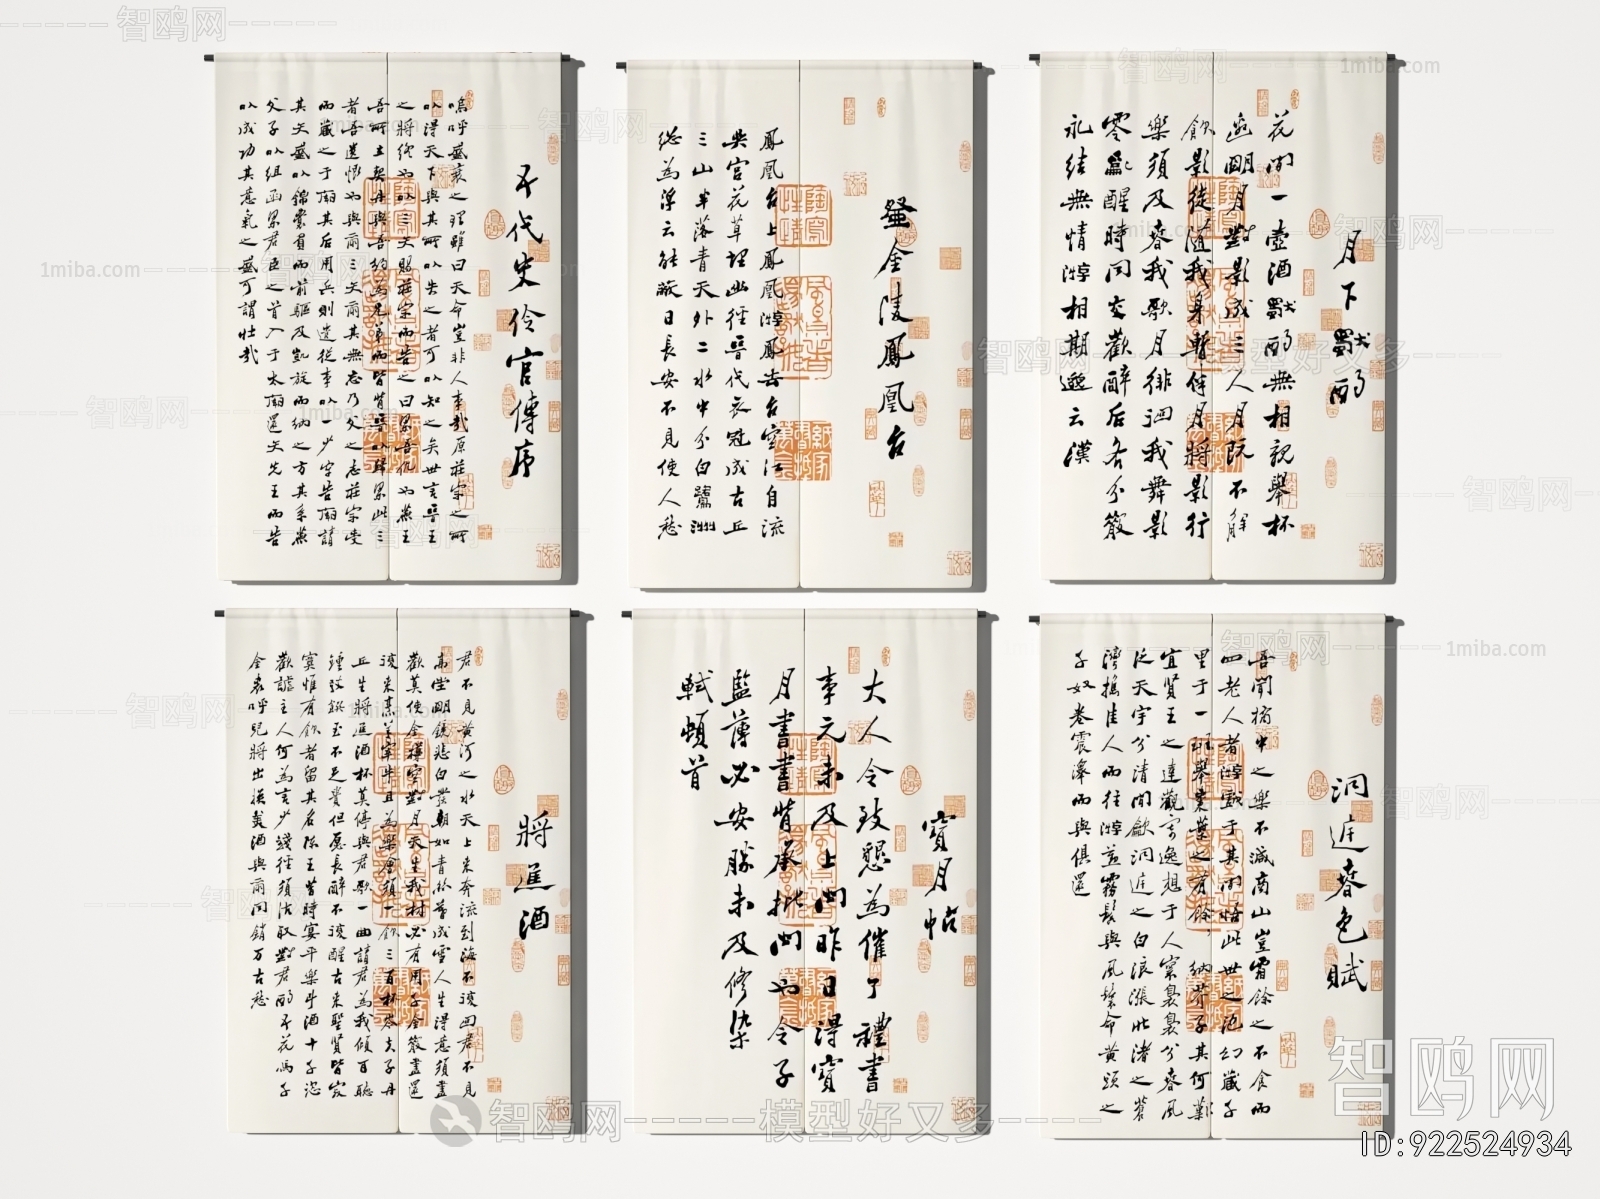 五代史伶官傳序
嗚呼盛衰之理雖曰天命豈非人事哉原莊宗之所
以得天下與其所以失之者可以知之矣世言晉王
之將終也以三矢賜莊宗而告之曰梁吾仇也燕王
吾所立契丹與吾約為兄弟而皆背晉以歸梁此三
者吾遺恨也與爾三矢爾其無忘乃父之志莊宗受
而藏之于廟其后用兵則遣從事以一少牢告廟請
其矢盛以錦囊負而前驅及凱旋而納之方其系燕
父子以組函梁君臣之首入于太廟還矢先王而告
以成功其意氣之盛可謂壯哉
登金陵鳳凰台
鳳凰台上鳳凰游鳳去台空江自流
吳宮花草埋幽徑晉代衣冠成古丘
三山半落青天外二水中分白鷺洲
總為浮云能蔽日長安不見使人愁
月下獨酌
花間一壺酒獨酌無相親舉杯
邀明月對影成三人月既不解
飲影徒隨我身暫伴月將影行
樂須及春我歌月徘徊我舞影
零亂醒時同交歡醉后各分散
永結無情游相期邈云漢
將進酒
君不見黃河之水天上來奔流到海不復回君不見
高堂明鏡悲白發朝如青絲暮成雪人生得意須盡
歡莫使金樽空對月天生我材必有用千金散盡還
復來烹羊宰牛且為樂會須一飲三百杯岑夫子丹
丘生將進酒杯莫停與君歌一曲請君為我傾耳聽
鐘鼓饌玉不足貴但愿長醉不復醒古來聖賢皆寂
寞惟有飲者留其名陳王昔時宴平樂斗酒十千恣
歡謔主人何為言少錢徑須沽取對君酌五花馬千
金裘呼兒將出換美酒與爾同銷万古愁
寶月帖
大人令致懇為催了禮書
事元未及上問昨日得寶
月書書背承批問也令子
監薄必安勝未及修染
軾頓首
洞庭春色賦
吾聞橘中之樂不減商山豈霜餘之不食而
四老人者游戲于其間悟此世之泡幻藏千
里于一班舉棗葉之有餘納芥子其何艱
宜賢王之達觀寄逸想于人寰裊裊兮春風
泛天宇兮清閒吹洞庭之白浪漲北渚之蒼
灣攜佳人而往游勒霧鬢與風鬟命黃頭之
千奴卷震澤而與俱還
智鸥网
1miba.com
智鸥网-----模型好又多----
智鸥网
ID:922524934